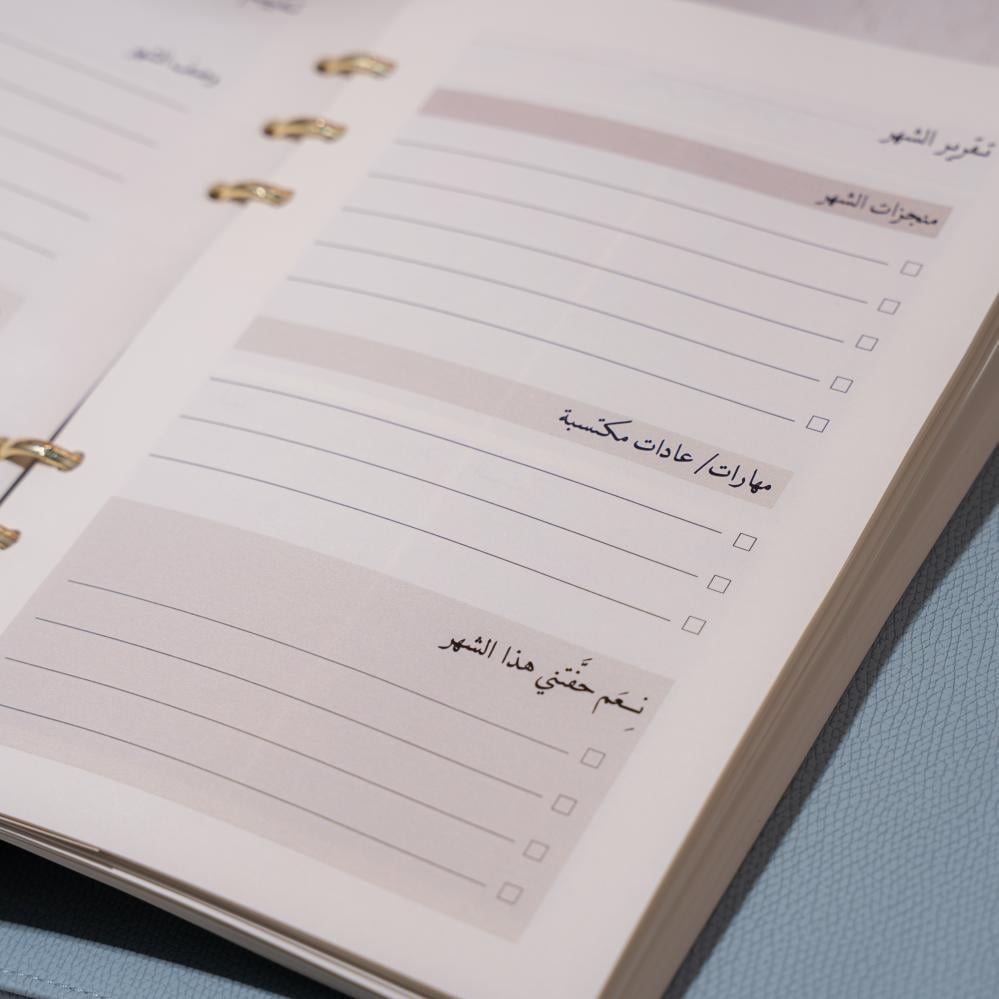 تقرير الشهر
منجزات الشهر
مهارات/ عادات مكتسبة
نِعَم حفَّتني هذا الشهر
وصف الشهر